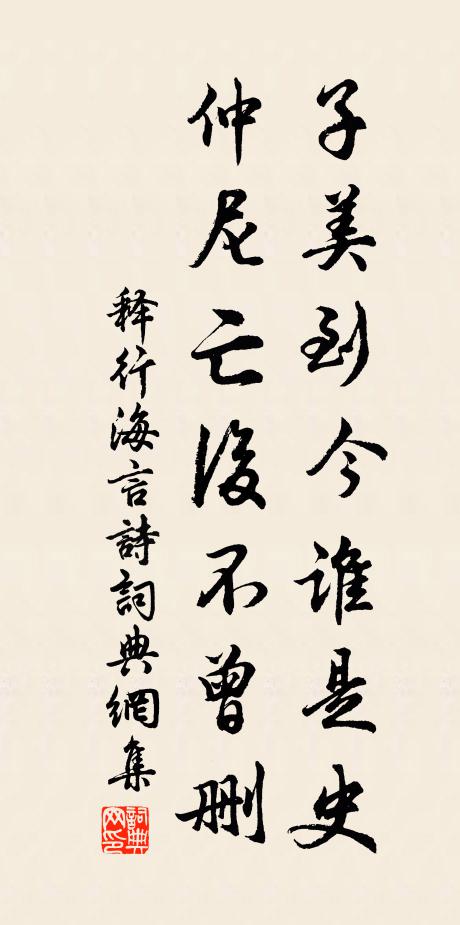 子美到今谁是史
仲尼亡後不曾删
释行海言詩詞典網集
詞典網印